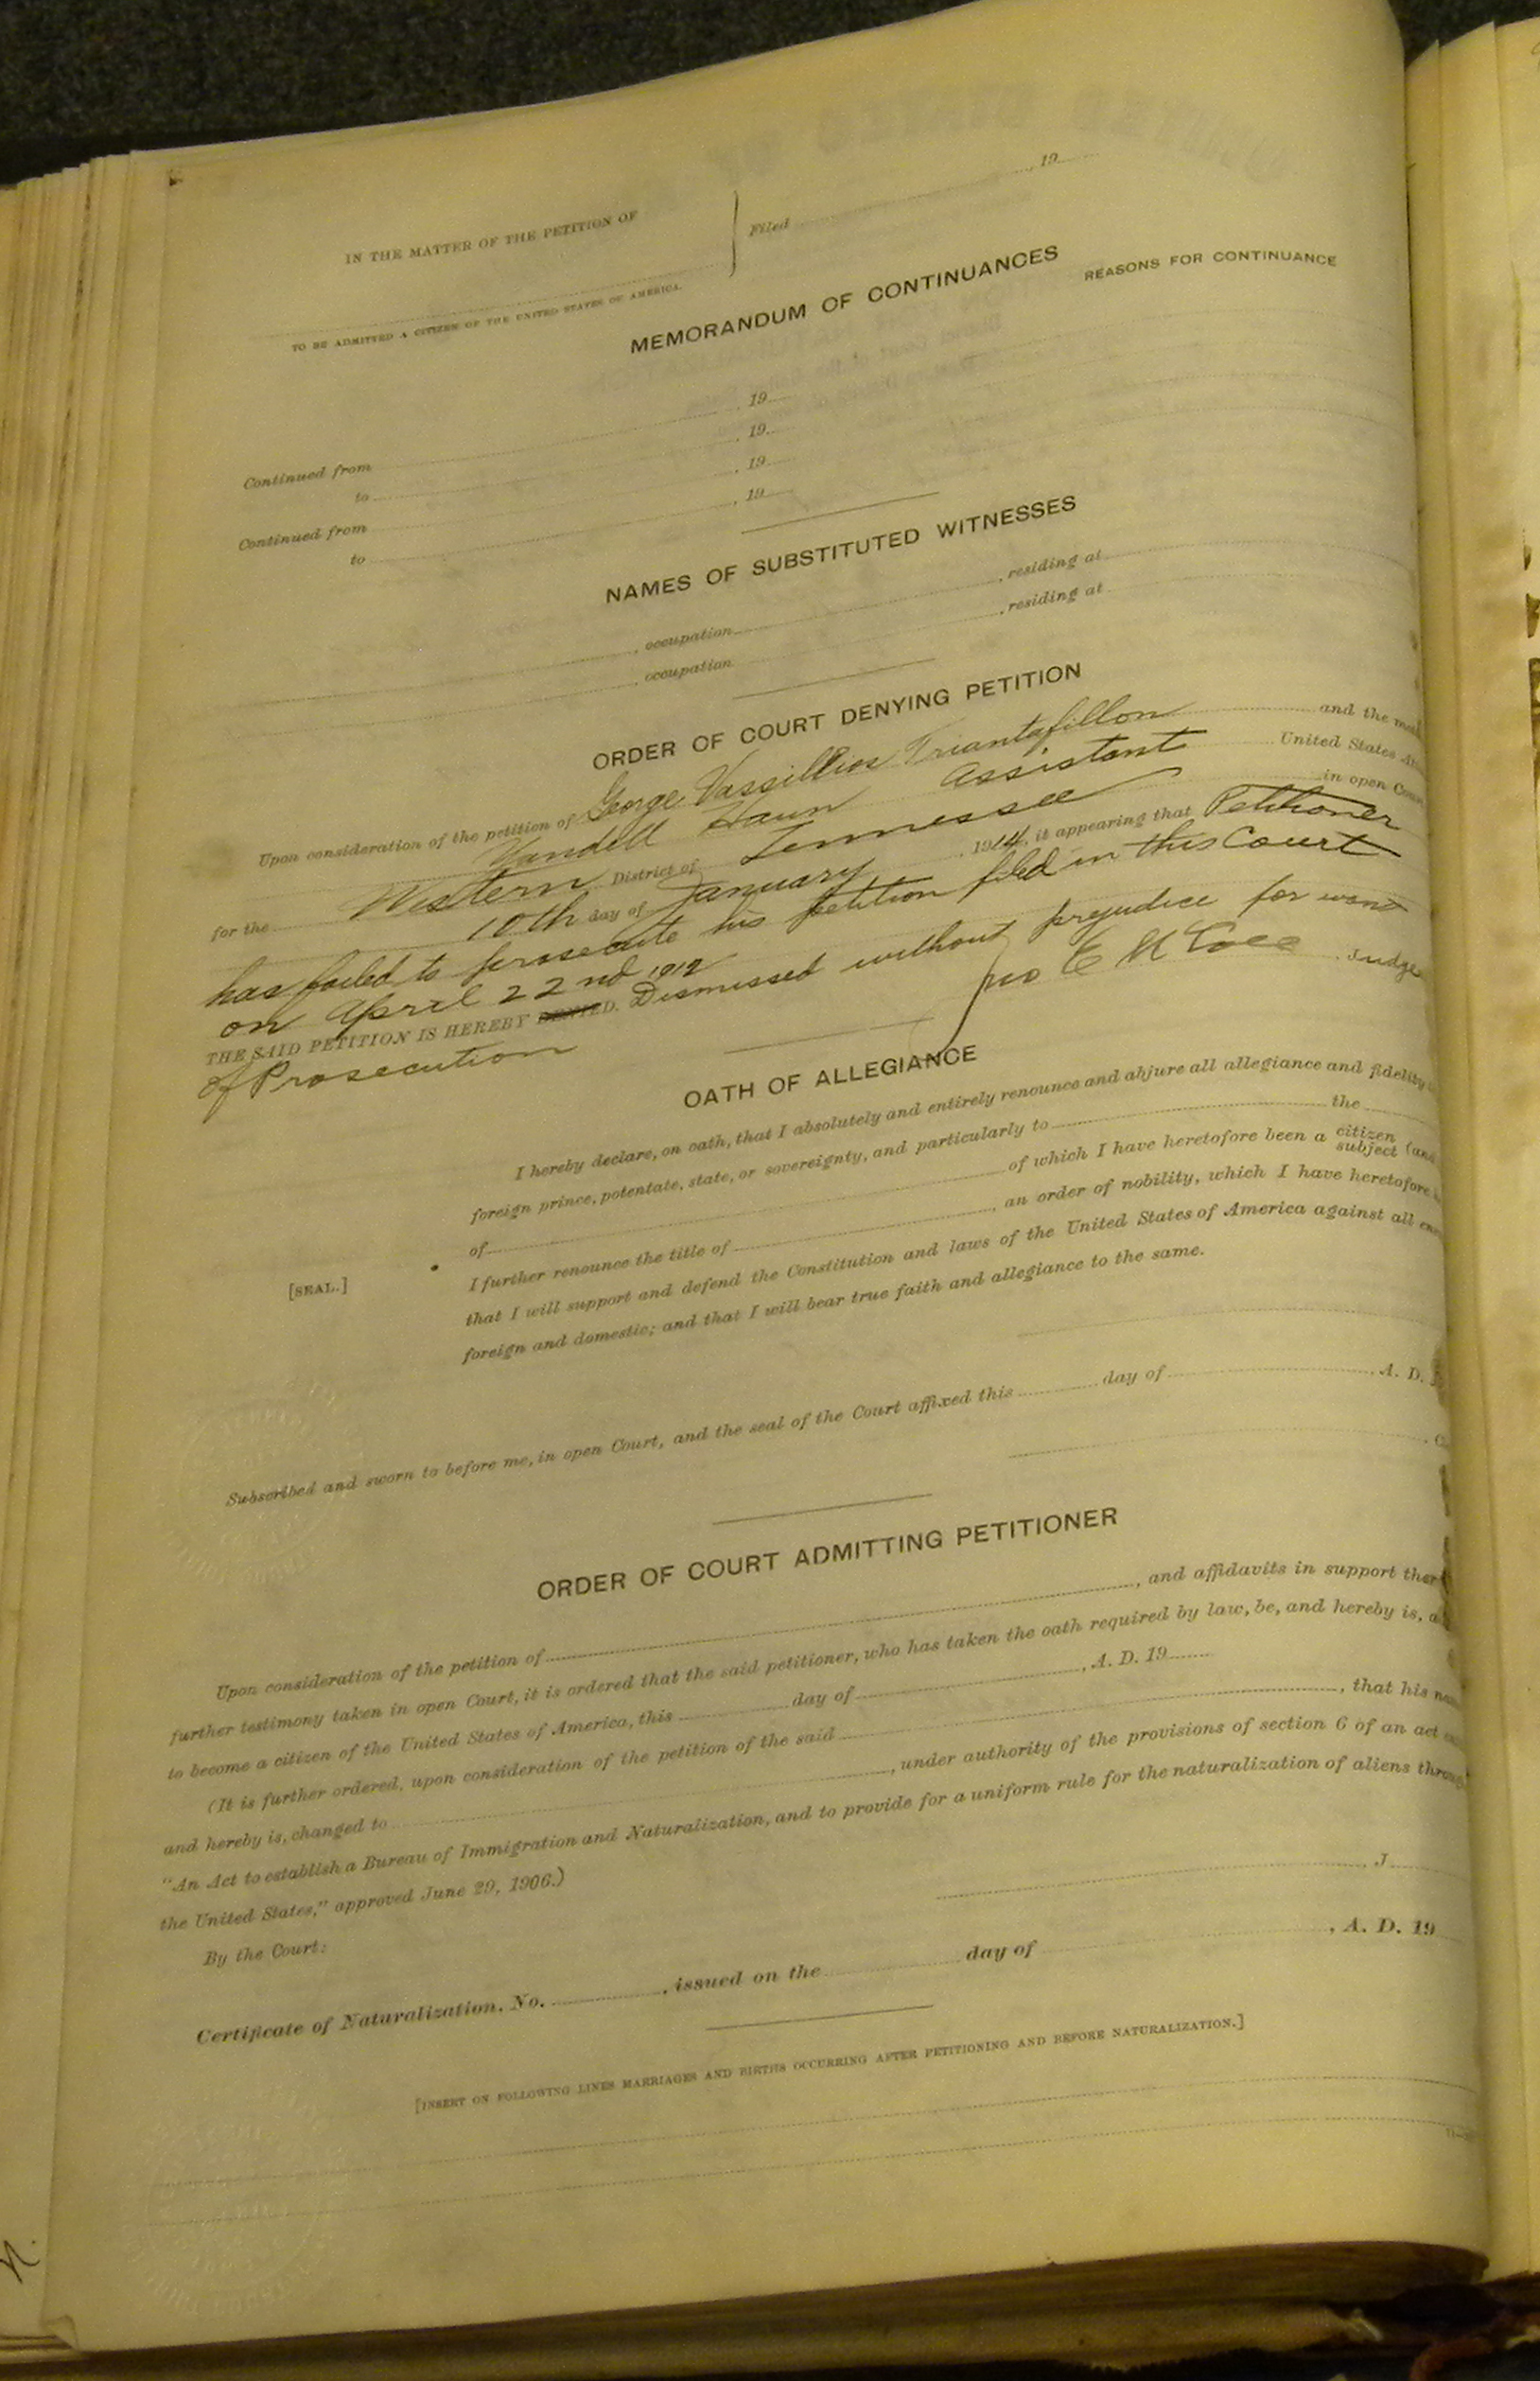 IN THE MATTER OF THE PETITION OF
Filed , 19
TO BE ADMITTED A CITIZEN OF THE UNITED STATES OF AMERICA.
MEMORANDUM OF CONTINUANCES
REASONS FOR CONTINUANCE
Continued from , 19
to , 19
Continued from , 19
to , 19
NAMES OF SUBSTITUTED WITNESSES
, occupation , residing at
, occupation , residing at
ORDER OF COURT DENYING PETITION
Upon consideration of the petition of George Vassillios Triantafillon and the
Yandell Haun Assistant United States
for the Western District of Tennessee in open
10th day of January , 1914, it appearing that Petitioner
has failed to prosecute his petition filed in this Court
on April 22nd 1912
THE SAID PETITION IS HEREBY DENIED. Dismissed without prejudice for want
of Prosecution
Jno E Judge
OATH OF ALLEGIANCE
I hereby declare, on oath, that I absolutely and entirely renounce and abjure all allegiance and fidelity
foreign prince, potentate, state, or sovereignty, and particularly to the
of of which I have heretofore been a citizen subject (and
I further renounce the title of , an order of nobility, which I have heretofore
that I will support and defend the Constitution and laws of the United States of America against all
foreign and domestic; and that I will bear true faith and allegiance to the same.
[SEAL.]
Subscribed and sworn to before me, in open Court, and the seal of the Court affixed this day of , A. D.
ORDER OF COURT ADMITTING PETITIONER
Upon consideration of the petition of , and affidavits in support
further testimony taken in open Court, it is ordered that the said petitioner, who has taken the oath required by law, be, and hereby is,
to become a citizen of the United States of America, this day of , A. D. 19
(It is further ordered, upon consideration of the petition of the said , that his
and hereby is, changed to , under authority of the provisions of section 6 of an act
"An Act to establish a Bureau of Immigration and Naturalization, and to provide for a uniform rule for the naturalization of aliens
the United States," approved June 29, 1906.)
By the Court:
, J
Certificate of Naturalization, No. , issued on the day of , A. D. 19
[INSERT ON FOLLOWING LINES MARRIAGES AND BIRTHS OCCURRING AFTER PETITIONING AND BEFORE NATURALIZATION.]